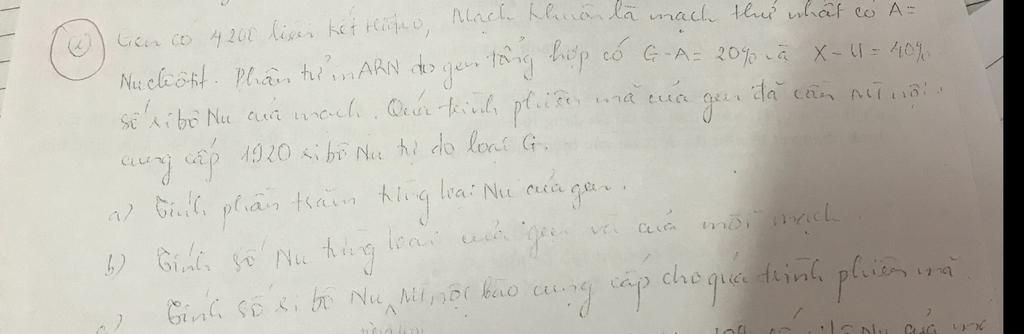 Gen có 4200 liên kết hiđrô, Mạch khuôn là mạch thứ nhất có A=
Nuclêôtit. Phân tử mARN do gen tổng hợp có G-A= 20% và X-U= 40%
số ribô Nu của mạch. Quá trình phiên mã của gen đã cần nội
cung cấp 1920 ribô Nu tự do loại G.
a) Tính phần trăm từng loại Nu của gen.
b) Tính số Nu từng loại của gen và của mỗi mạch.
c) Tính số ribô Nu bào cung cấp cho quá trình phiên mã